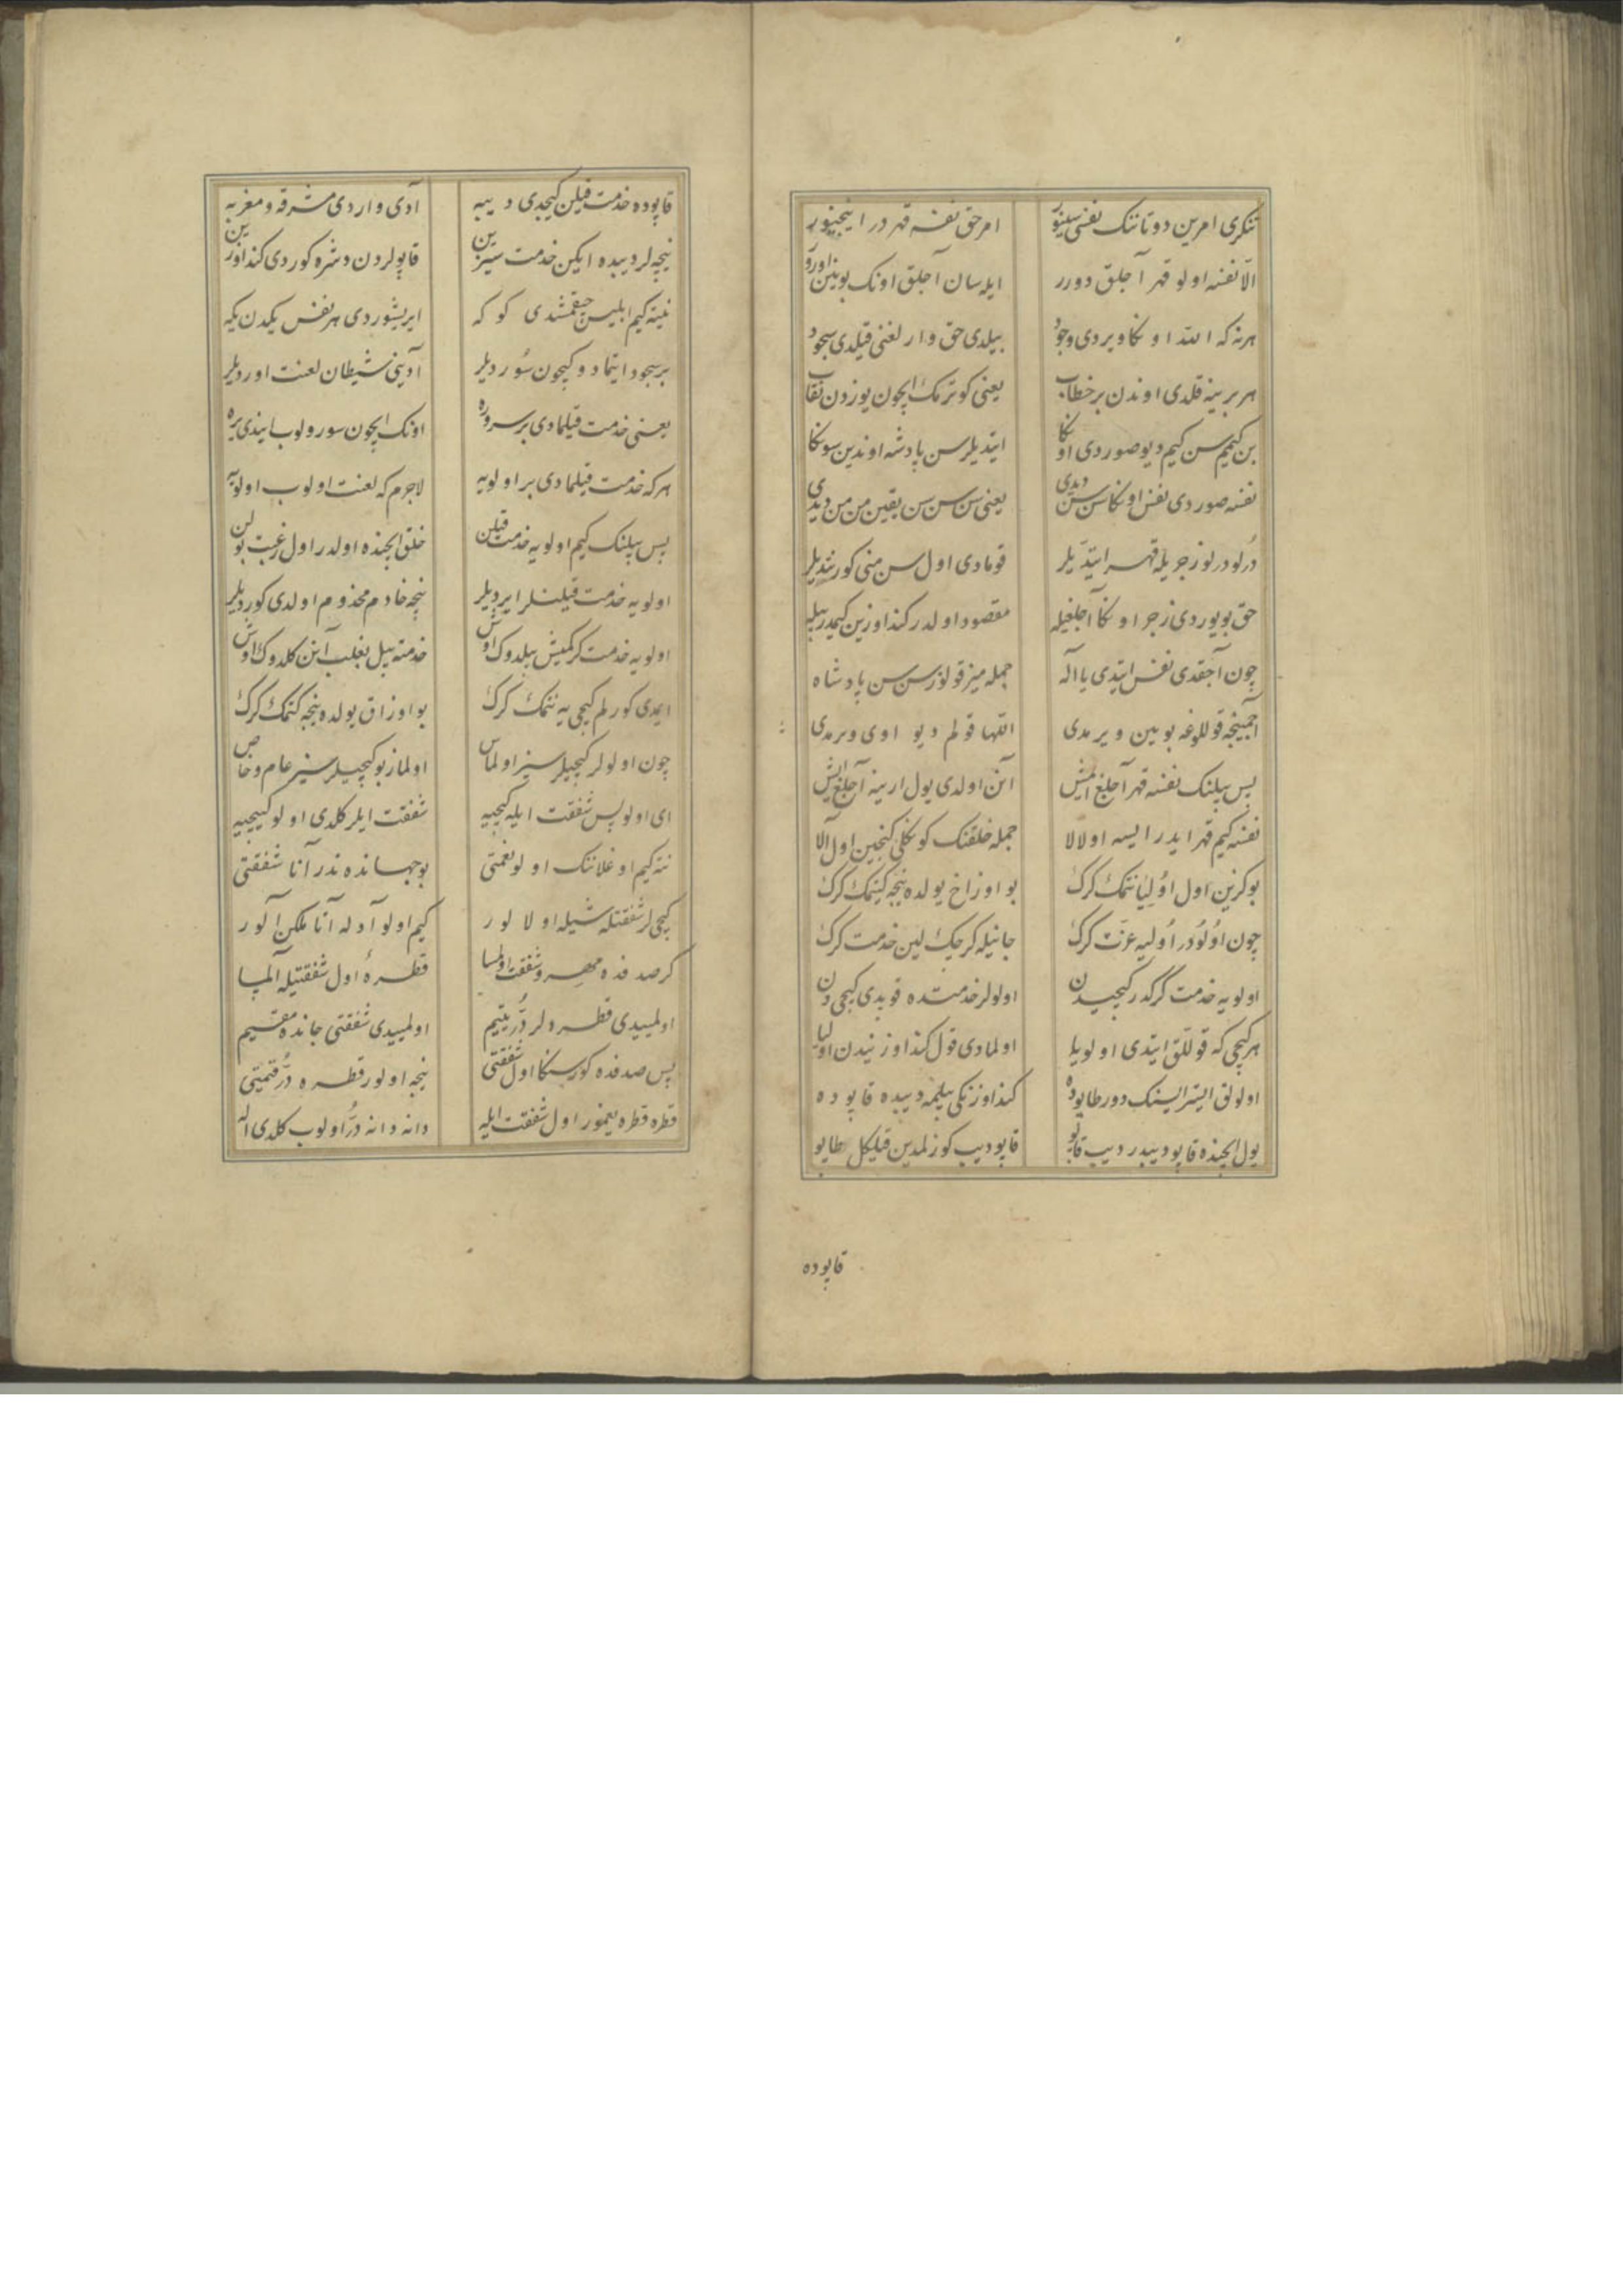 تنکری امرین دوتاننک نفسی سینور امر حق نفسه قهر در اینجینور
الا نفسه اولو قهر آجلق دورر ایله سان آجلق اونک بوینین اورر
هرنه که الله اونکا ویردی وجود بیلدی حق وارلغنی قیلدی سجود
هر برینه قلدی اوندن بر خطاب یعنی کوترمک ایچون یوزدن نقاب
بن کیمم سن کیم دیو صوردی اونکا ایتدیلر سن پادشه اوندین سونکا
نفسه صوردی نفس اونکا سن سن دیدی یعنی سن سن سن یقین من من دیدی
درلو درلو زجریله قهر ایتدیلر قومادی اول سن منی کورنتدیلر
حق بویوردی زجر اونکا آجلغیله مقصود اولدر کنداوزین کیمدر بیله
چون آجقدی نفس ایتدی یا اله جمله میز قولوز سن سن پادشاه
آجمیینجه قوللوغه بویین ویرمدی اللها قولم دیو اوی ویرمدی
پس بیلنک نفسه قهر آجلغ ایمش آنن اولدی یول ارینه آجلغ ایش
نفسه کیم قهر ایدر ایسه اولالا جمله خلقنک کونکلی کنجین اول آلا
بوکزین اول اولیا نتمک کرک بو اوزاخ یولده نیجه کیتمک کرک
چون اولودر اولیه عزت کرک جانیله کرجک لین خدمت کرک
اولویه خدمت کرکدر کیجیدن اولولر خدمتده قوبدی کیجیدن
هر کیچی که قوللق ایتدی اولویلا اولمادی قول کنداوزنیدن اولیا
اولولق ایستر ایسنک دور طاپوده کنداوزنکی بیلمه دیبده قاپوده
یول ایچنده قاپو دیبدر دیب قاپو قاپو دیب کوزلمدین قیلیکل طاپو
قاپوده
قاپوده خدمت قیلن کیجدی دیبه آدی واردی مشرقه و مغربه
نیجه لر دیبده ایکن خدمت سیزین قاپولردن دشره کوردی کنداوزین
نیته کیم ابلیس چیقمشدی کوکه ایریشوردی هر نفس یکدن یکه
بر سجود ایتمادوکیچون سوردیلر آدینی شیطان لعنت اوردیلر
یعنی خدمت قیلمادی بر سروره اونک ایچون سورولوب ایندی یره
هرکه خدمت قیلمادی بر اولویه لاجرم که لعنت اولوب اولویه
پس بیلنک کیم اولویه خدمت قیلن خلق ایچنده اولدر اول رغبت بولن
اولویه خدمت قیلنلر ایردیلر نیجه خادم مخدوم اولدی کوردیلر
اولویه خدمت کرکمیش بیلدوک اوش خدمته بیل بغلب آنن کلدوک اوش
ایمدی کورلم کیجی یه نتمک کرک بو اوزاق یولده نیجه کتمک کرک
چون اولولر کیجیلر سیز اولماس اولماز بو کیجیلر سیز عام و خاص
ای اولو پس شفقت ایله کیجیه شفقت ایلر کلدی اولو کیجیه
نته کیم اوغلاننک اولو نعمتی بو جهانده ندر آنا شفقتی
کیجی لر شفقتله شیله اولالور کیم اولو آدله آنا ملکن آلور
کر صدفده مهر و شفقت اولمسا قطره اول شفقتیله آلمیسا
اولمییدی قطره لر در یتیم اولمییدی شفقتی جانده مقیم
پس صدفده کورسنکا اول شفقتی نیجه اولور قطره در قیمتی
قطره قطره یغمور اول شفقت ایله دانه دانه در اولوب کلدی اله